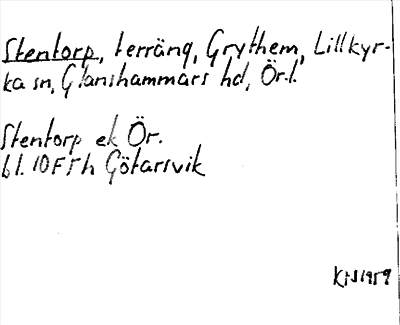 Stentorp, terräng, Grythem, Lillkyr-
ka sn, Glanshammars hd, Ör.l.
Stentorp ek Ör.
bl. 10F5h Götarsvik
KN 1959